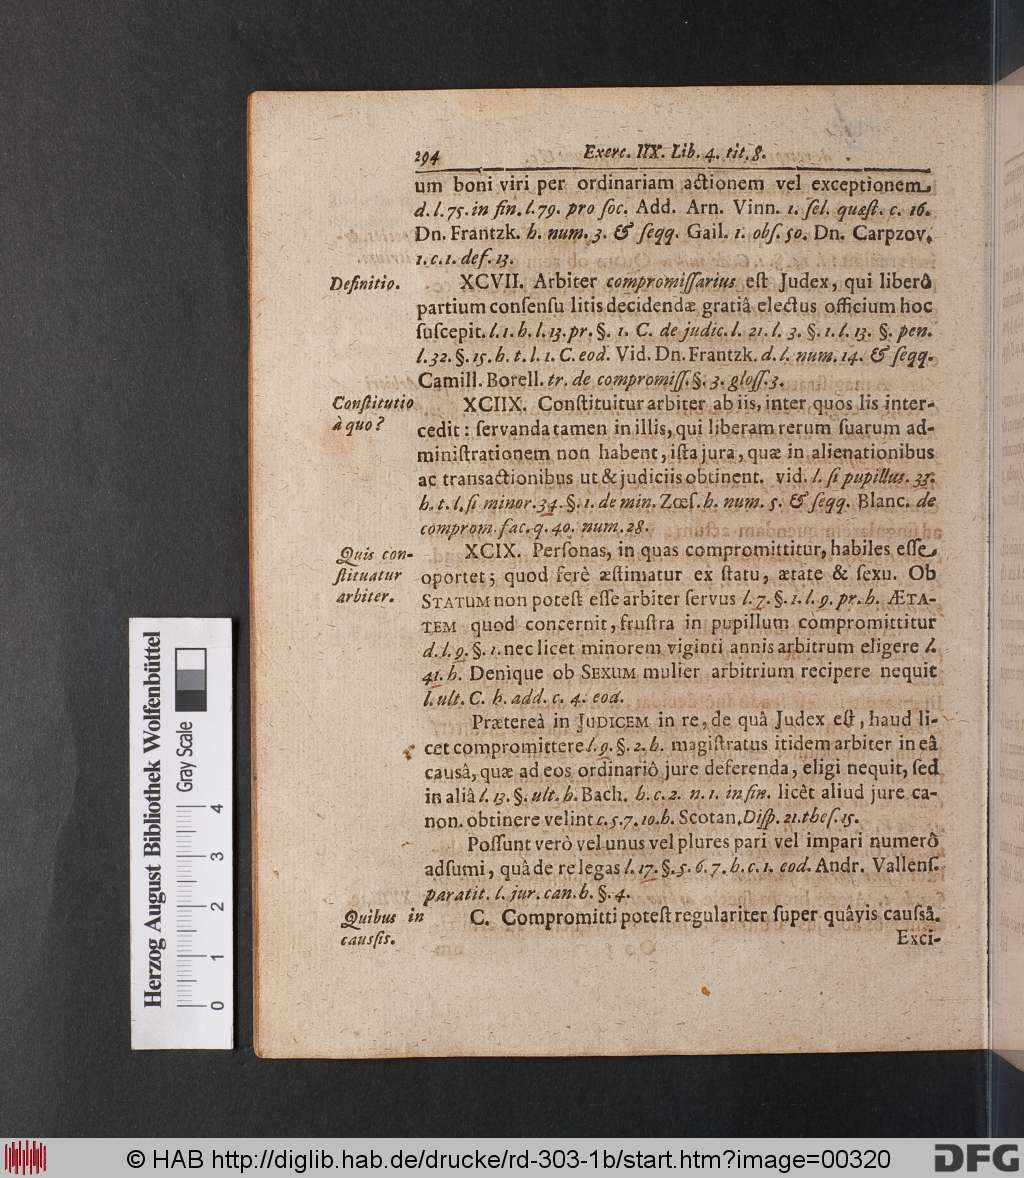 294 Exerc. IIX. Lib. 4. tit. 8.
um boni viri per ordinariam actionem vel exceptionem
d. l. 75. in fin. l. 79. pro ſoc. Add. Arn. Vinn. 1. ſel. quæſt. c. 16.
Dn. Frantzk. h. num. 3. & ſeqq. Gail. 1. obſ. 50. Dn. Carpzov.
1. c. 1. def. 13.
Definitio.
XCVII. Arbiter compromiſſarius eſt Judex, qui liberô
partium conſenſu litis decidendæ gratiâ electus officium hoc
ſuſcepit. l. 1. h. l. 13. pr. §. 1. C. de judic. l. 21. l. 3. §. 1. l. 13. §. pen.
l. 32. §. 15. h. t. l. 1. C. eod. Vid. Dn. Frantzk. d. l. num. 14. & ſeqq.
Camill. Borell. tr. de compromiſſ. §. 3. gloſſ. 3.
Conſtitutio
à quo?
XCIIX. Conſtituitur arbiter ab iis, inter quos lis inter-
cedit: ſervanda tamen in illis, qui liberam rerum ſuarum ad-
miniſtrationem non habent, iſta jura, quæ in alienationibus
ac transactionibus ut & judiciis obtinent. vid. l. ſi pupillus. 33.
h. t. l. ſi minor. 34. §. 1. de min. Zœſ. h. num. 5. & ſeqq. Blanc. de
comprom. fac. q. 40. num. 28.
Quis con-
ſtituatur
arbiter.
XCIX. Perſonas, in quas compromittitur, habiles eſſe
oportet; quod ferè æſtimatur ex ſtatu, ætate & ſexu. Ob
STATUM non poteſt eſſe arbiter ſervus l. 7. §. 1. l. 9. pr. h. ÆTA-
TEM quod concernit, fruſtra in pupillum compromittitur
d. l. 9. §. 1. nec licet minorem viginti annis arbitrum eligere l.
41. h. Denique ob SEXUM mulier arbitrium recipere nequit
l. ult. C. h. add. c. 4. eod.
Prætereà in JUDICEM in re, de quâ Judex eſt, haud li-
cet compromittere l. 9. §. 2. h. magiſtratus itidem arbiter in eâ
causâ, quæ ad eos ordinariô jure deferenda, eligi nequit, ſed
in aliâ l. 13. §. ult. h. Bach. h. c. 2. n. 1. in fin. licèt aliud jure ca-
non. obtinere velint c. 5. 7. 10. h. Scotan. Diſp. 21. theſ. 15.
Poſſunt verò vel unus vel plures pari vel impari numerô
adſumi, quâ de re legas l. 17. §. 5. 6. 7. h. c. 1. eod. Andr. Vallenſ.
paratit. l. jur. can. h. §. 4.
Quibus in
causſis.
C. Compromitti poteſt regulariter ſuper quâvis cauſsâ.
Exci-
Herzog August Bibliothek Wolfenbüttel
Gray Scale
0 1 2 3 4
© HAB http://diglib.hab.de/drucke/rd-303-1b/start.htm?image=00320
DFG